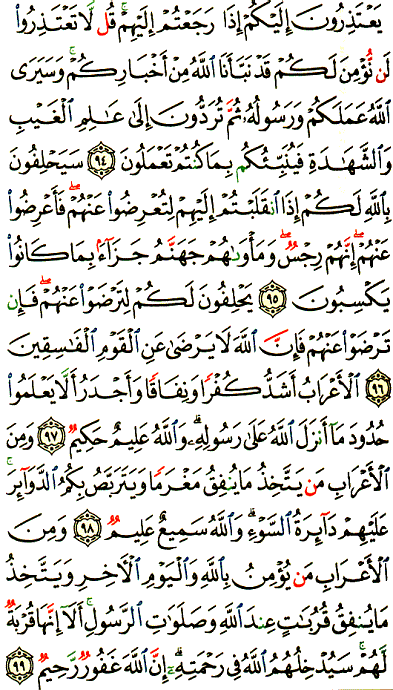 يَعْتَذِرُونَ إِلَيْكُمْ إِذَا رَجَعْتُمْ إِلَيْهِمْ ۚ قُل لَّا تَعْتَذِرُوا۟
لَن نُّؤْمِنَ لَكُمْ قَدْ نَبَّأَنَا ٱللَّهُ مِنْ أَخْبَارِكُمْ ۚ وَسَيَرَى
ٱللَّهُ عَمَلَكُمْ وَرَسُولُهُۥ ثُمَّ تُرَدُّونَ إِلَىٰ عَـٰلِمِ ٱلْغَيْبِ
وَٱلشَّهَـٰدَةِ فَيُنَبِّئُكُم بِمَا كُنتُمْ تَعْمَلُونَ ٩٤ سَيَحْلِفُونَ
بِٱللَّهِ لَكُمْ إِذَا ٱنقَلَبْتُمْ إِلَيْهِمْ لِتُعْرِضُوا۟ عَنْهُمْ ۖ فَأَعْرِضُوا۟
عَنْهُمْ ۖ إِنَّهُمْ رِجْسٌ ۖ وَمَأْوَىٰهُمْ جَهَنَّمُ جَزَآءًۢ بِمَا كَانُوا۟
يَكْسِبُونَ ٩٥ يَحْلِفُونَ لَكُمْ لِتَرْضَوْا۟ عَنْهُمْ ۖ فَإِن
تَرْضَوْا۟ عَنْهُمْ فَإِنَّ ٱللَّهَ لَا يَرْضَىٰ عَنِ ٱلْقَوْمِ ٱلْفَـٰسِقِينَ
٩٦ ٱلْأَعْرَابُ أَشَدُّ كُفْرًا وَنِفَاقًا وَأَجْدَرُ أَلَّا يَعْلَمُوا۟
حُدُودَ مَآ أَنزَلَ ٱللَّهُ عَلَىٰ رَسُولِهِۦ ۗ وَٱللَّهُ عَلِيمٌ حَكِيمٌ ٩٧ وَمِنَ
ٱلْأَعْرَابِ مَن يَتَّخِذُ مَا يُنفِقُ مَغْرَمًا وَيَتَرَبَّصُ بِكُمُ ٱلدَّوَآئِرَ ۚ
عَلَيْهِمْ دَآئِرَةُ ٱلسَّوْءِ ۗ وَٱللَّهُ سَمِيعٌ عَلِيمٌ ٩٨ وَمِنَ
ٱلْأَعْرَابِ مَن يُؤْمِنُ بِٱللَّهِ وَٱلْيَوْمِ ٱلْـَٔاخِرِ وَيَتَّخِذُ
مَا يُنفِقُ قُرُبَـٰتٍ عِندَ ٱللَّهِ وَصَلَوَٰتِ ٱلرَّسُولِ ۚ أَلَآ إِنَّهَا قُرْبَةٌ
لَّهُمْ ۚ سَيُدْخِلُهُمُ ٱللَّهُ فِى رَحْمَتِهِۦٓ ۗ إِنَّ ٱللَّهَ غَفُورٌ رَّحِيمٌ ٩٩